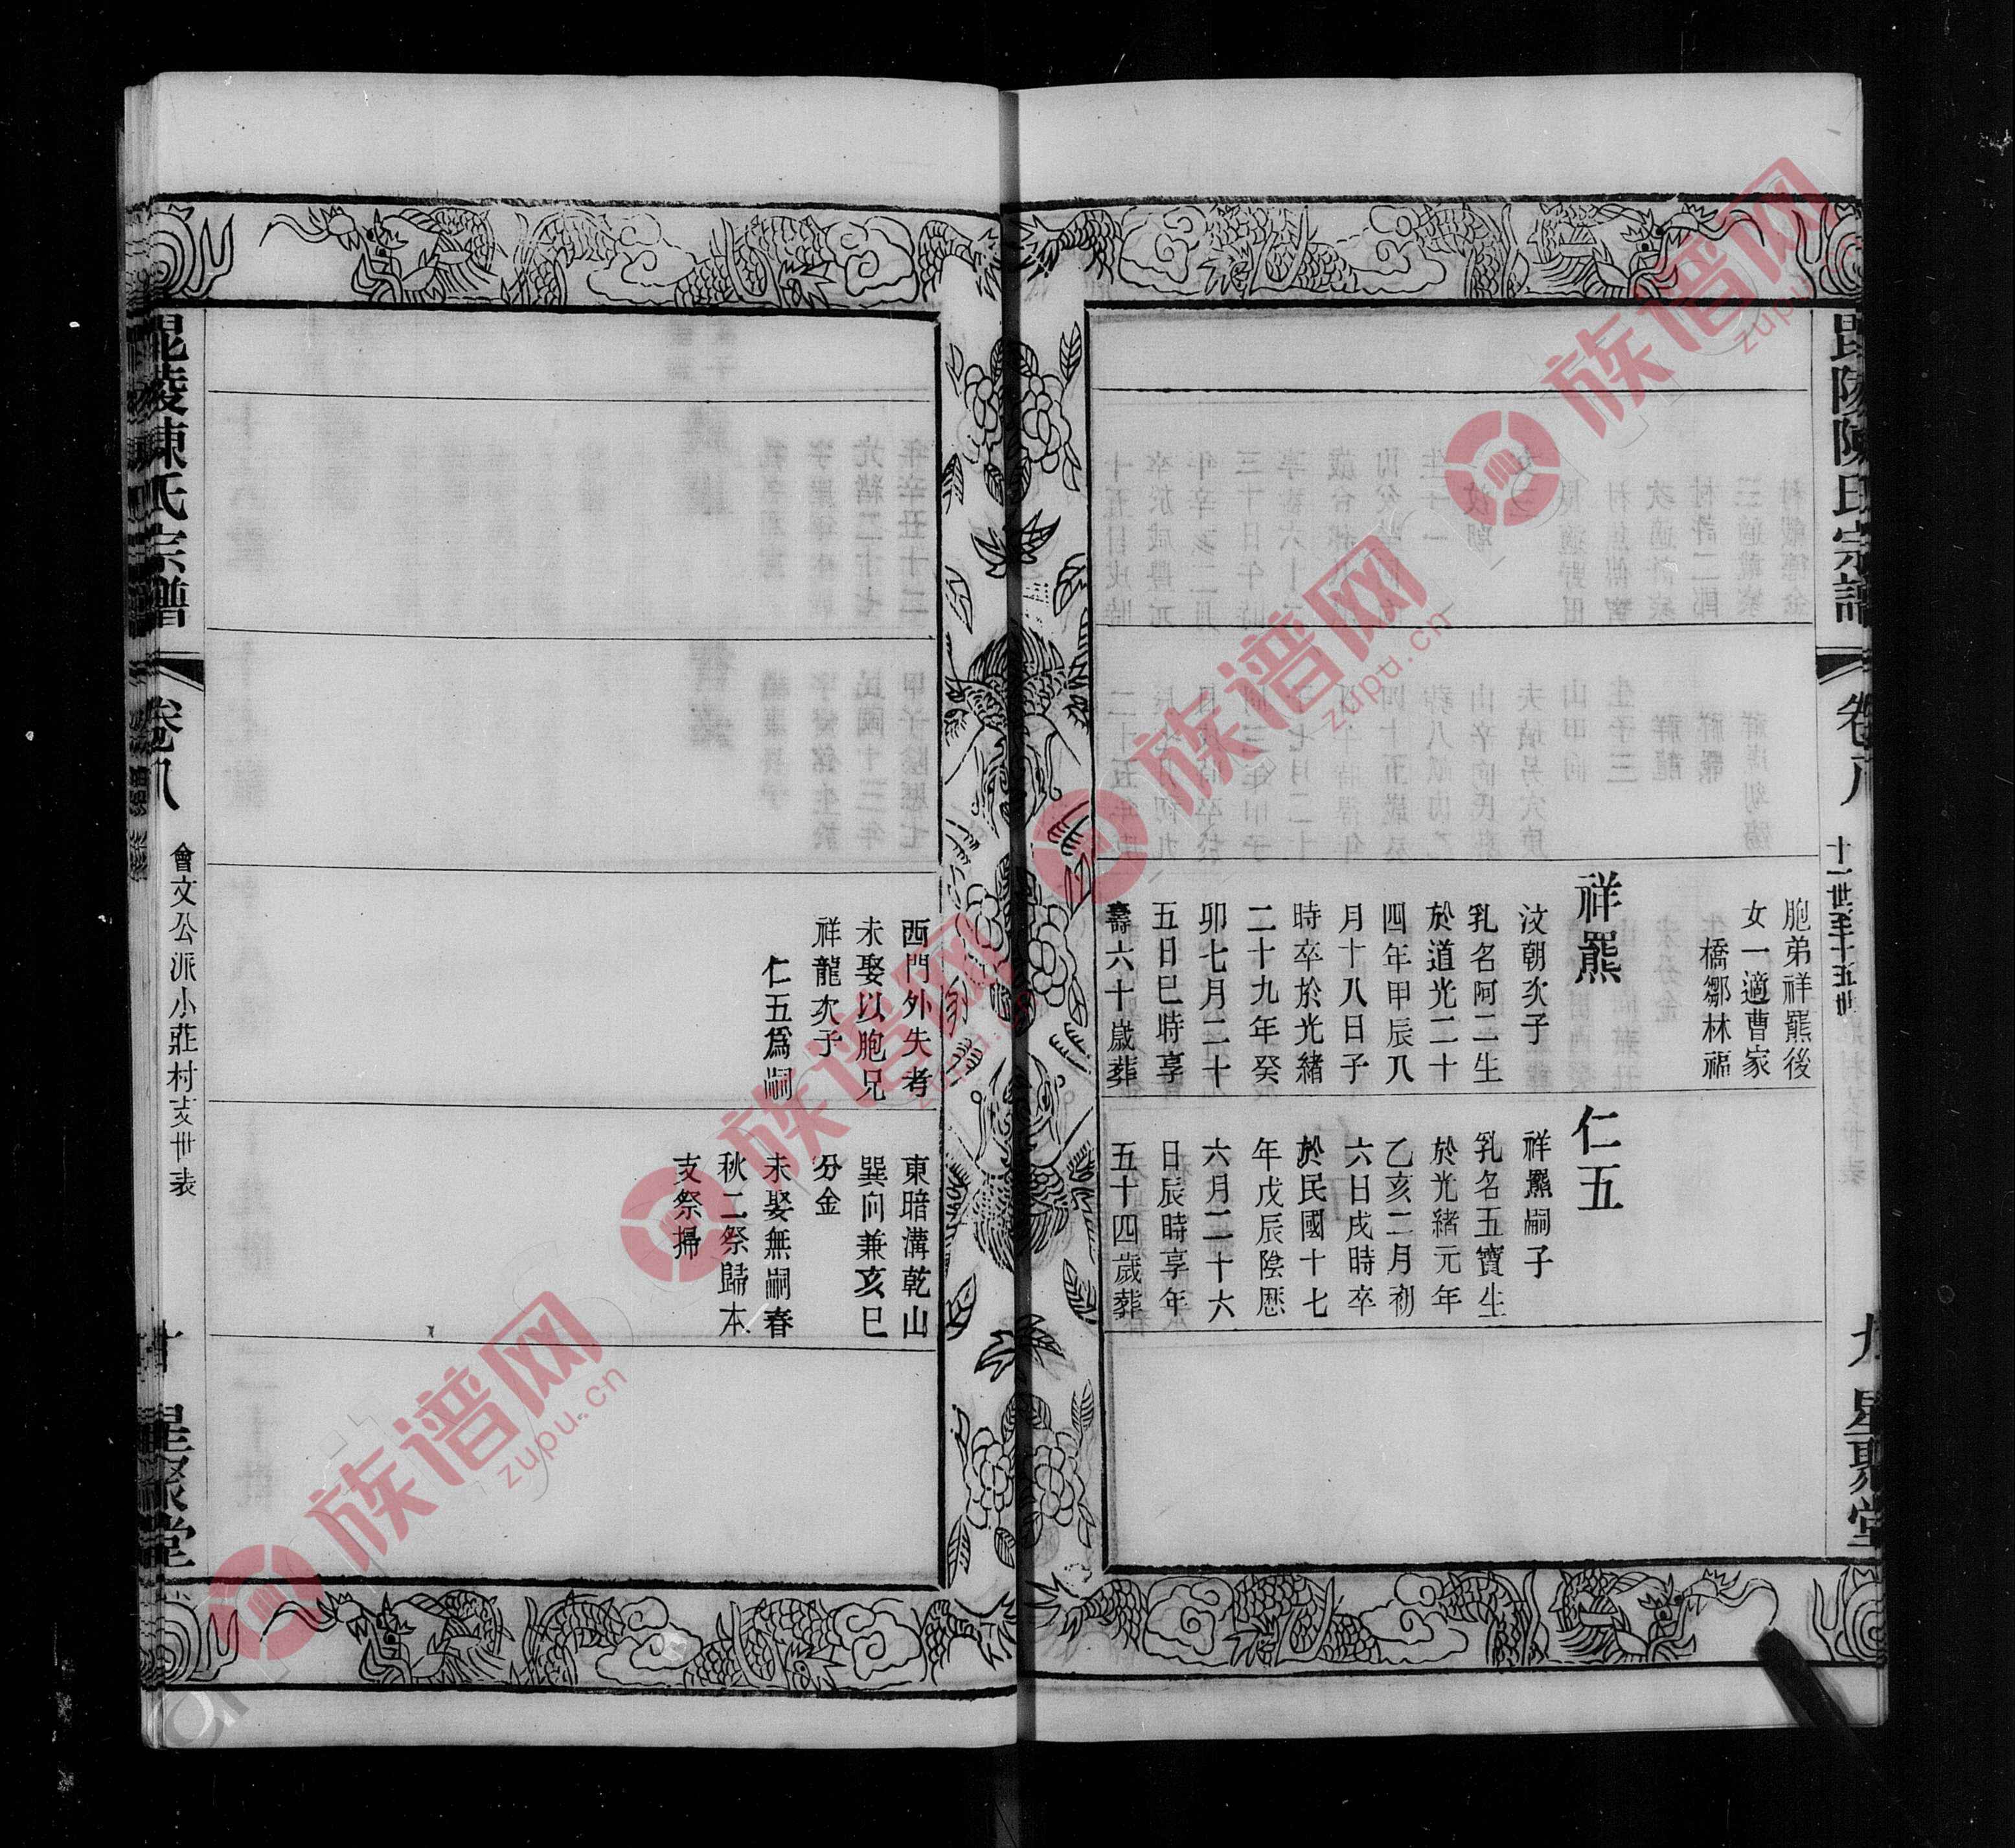 毘陵陳氏宗譜
卷八
十一世至十五世
九
星聚堂
胞弟祥羆後
女一適曹家
橋鄒林福
祥羆
汶朝次子
乳名阿二生
於道光二十
四年甲辰八
月十八日子
時卒於光緒
二十九年癸
卯七月二十
五日巳時享
壽六十歲葬
仁五
祥羆嗣子
乳名五寶生
於光緒元年
乙亥二月初
六日戌時卒
於民國十七
年戊辰陰歷
六月二十六
日辰時享年
五十四歲葬
西門外失考
未娶以胞兄
祥龍次子
仁五為嗣
東暗溝乾山
巽向兼亥巳
分金
未娶無嗣春
秋二祭歸本
支祭掃
毘陵陳氏宗譜
卷八
會文公派小莊村支世表
十
星聚堂
族谱网
zupu.cn
族谱网
zupu.cn
族谱网
族谱网
zupu.cn